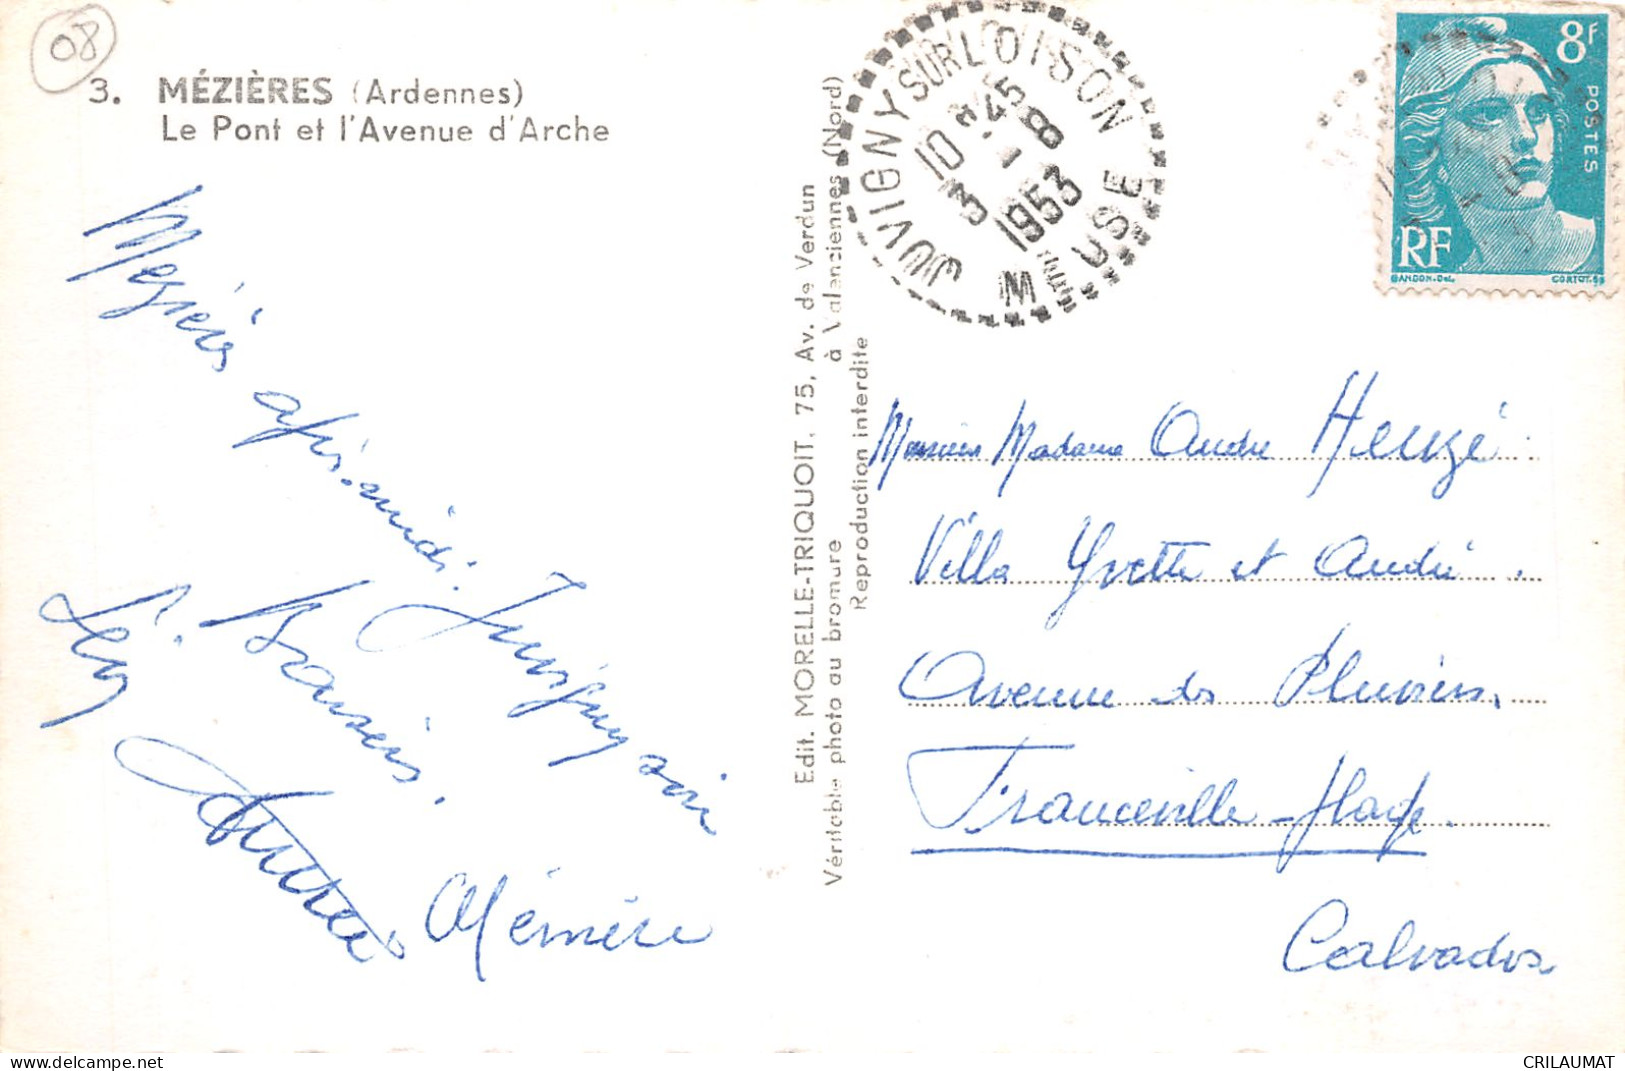 08
3. MÉZIÈRES (Ardennes)
Le Pont et l'Avenue d'Arche
Mézières
après-midi.
Juvigny soir
Baisers.
Mémère
Edit. MORELLE-TRIQUOIT, 75, Av. de Verdun
à Valenciennes (Nord)
Véritable photo au bromure
Reproduction interdite
JUVIGNY SUR LOISON
MEUSE
10 H 45
3 - 8
1953
8F
POSTES
RF
GANDON-DEL.
CORTOT-SC
Monsieur Madame André Heuzé
Villa Yvette et André.
Avenue des Pluviers.
Franceville-plage.
Calvados
CRILAUMAT